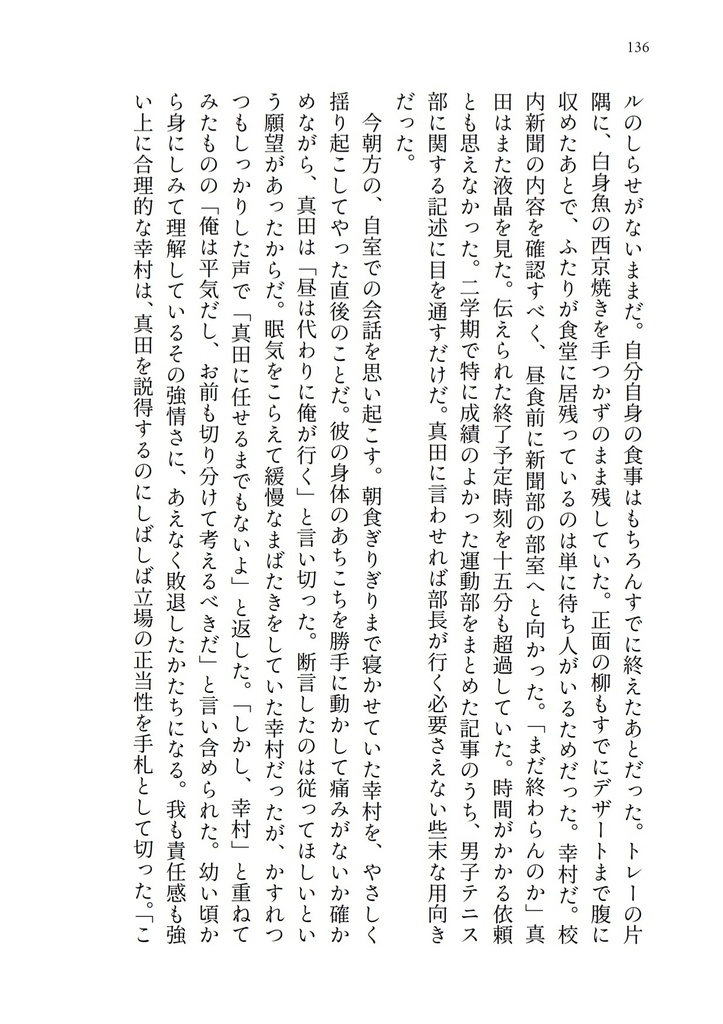 136
ルのしらせがないままだ。自分自身の食事はもちろんすでに終えたあとだった。トレーの片
隅に、白身魚の西京焼きを手つかずのまま残していた。正面の柳もすでにデザートまで腹に
収めたあとで、ふたりが食堂に居残っているのは単に待ち人がいるためだった。幸村だ。校
内新聞の内容を確認すべく、昼食前に新聞部の部室へと向かった。「まだ終わらんのか」真
田はまた液晶を見た。伝えられた終了予定時刻を十五分も超過していた。時間がかかる依頼
とも思えなかった。二学期で特に成績のよかった運動部をまとめた記事のうち、男子テニス
部に関する記述に目を通すだけだ。真田に言わせれば部長が行く必要さえない些末な用向き
だった。
今朝方の、自室での会話を思い起こす。朝食ぎりぎりまで寝かせていた幸村を、やさしく
揺り起こしてやった直後のことだ。彼の身体のあちこちを勝手に動かして痛みがないか確か
めながら、真田は「昼は代わりに俺が行く」と言い切った。断言したのは従ってほしいとい
う願望があったからだ。眠気をこらえて緩慢なまばたきをしていた幸村だったが、かすれつ
つもしっかりした声で「真田に任せるまでもないよ」と返した。「しかし、幸村」と重ねて
みたものの「俺は平気だし、お前も切り分けて考えるべきだ」と言い含められた。幼い頃か
ら身にしみて理解しているその強情さに、あえなく敗退したかたちになる。我も責任感も強
い上に合理的な幸村は、真田を説得するのにしばしば立場の正当性を手札として切った。「こ